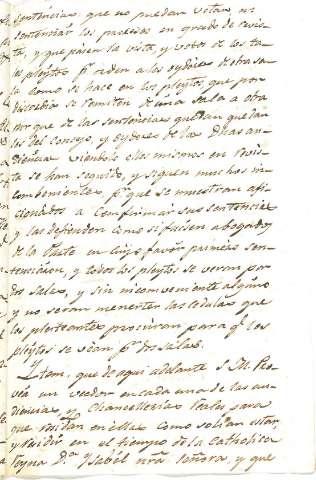 sentencias, que no puedan vēr, ni
sentenciar los procesos en grado de revis-
ta, y que pasen la vista, y votos de los ta-
les pleytos pʳ orden a los oydores de otra sa-
la como se hace en los pleytos que por
discordia se remiten de una sala a otra
por que de las sentencias que dan que los
del consejo, y oydores de las dhas au-
diencias viendolo ellos mismos en revis-
ta se han seguido, y siguen muchos in-
combenientes pʳ qᵉ se muestran afi-
cionados a confirmar sus sentencias
y las defienden como si fuesen abogados
de la parte en cuyo favor primero sen-
tenciaron, y todos los pleytos se veran por
dos salas, y sin inconveniente alguno
y no seran menester las cedulas que
los pleiteantes procuran para qᵉ los
pleytos se vean pʳ dos salas.
Ytem, que de aqui adelante S. M. Pro-
vea un veedor en cada una de las au-
diencias y Chancellerias reales para
que residan en ellas como solian estar,
y residir en el tiempo de la Catholica
reyna Dª Ysabèl nrã señora, y que